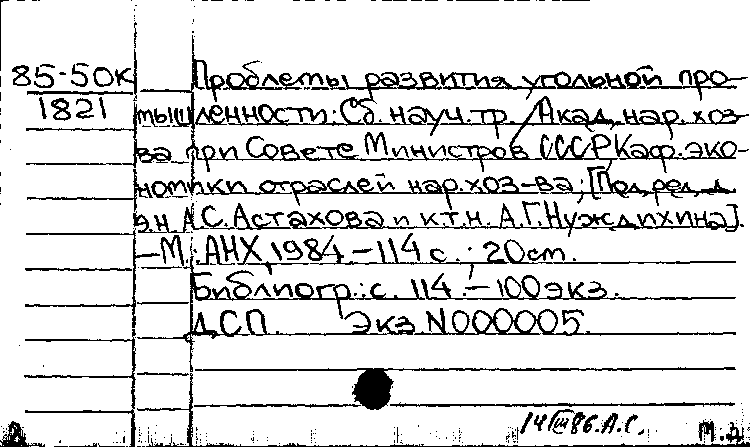 85-50к Проблемы развития угольной про-
1821 мышленности: Сб. науч. тр. / Акад. нар. хоз-
ва при Совете Министров СССР, Каф. эко-
номики отраслей нар. хоз-ва; [Под ред. д.
э.н. А.С. Астахова и к.т.н. А.Г. Нуждихина].
—М.: АНХ, 1984 —114 с.; 20 cm.
Библиогр.: с. 114. —100 экз.
ДСП. Экз N000005.
14 III 86. А.С. М.д.